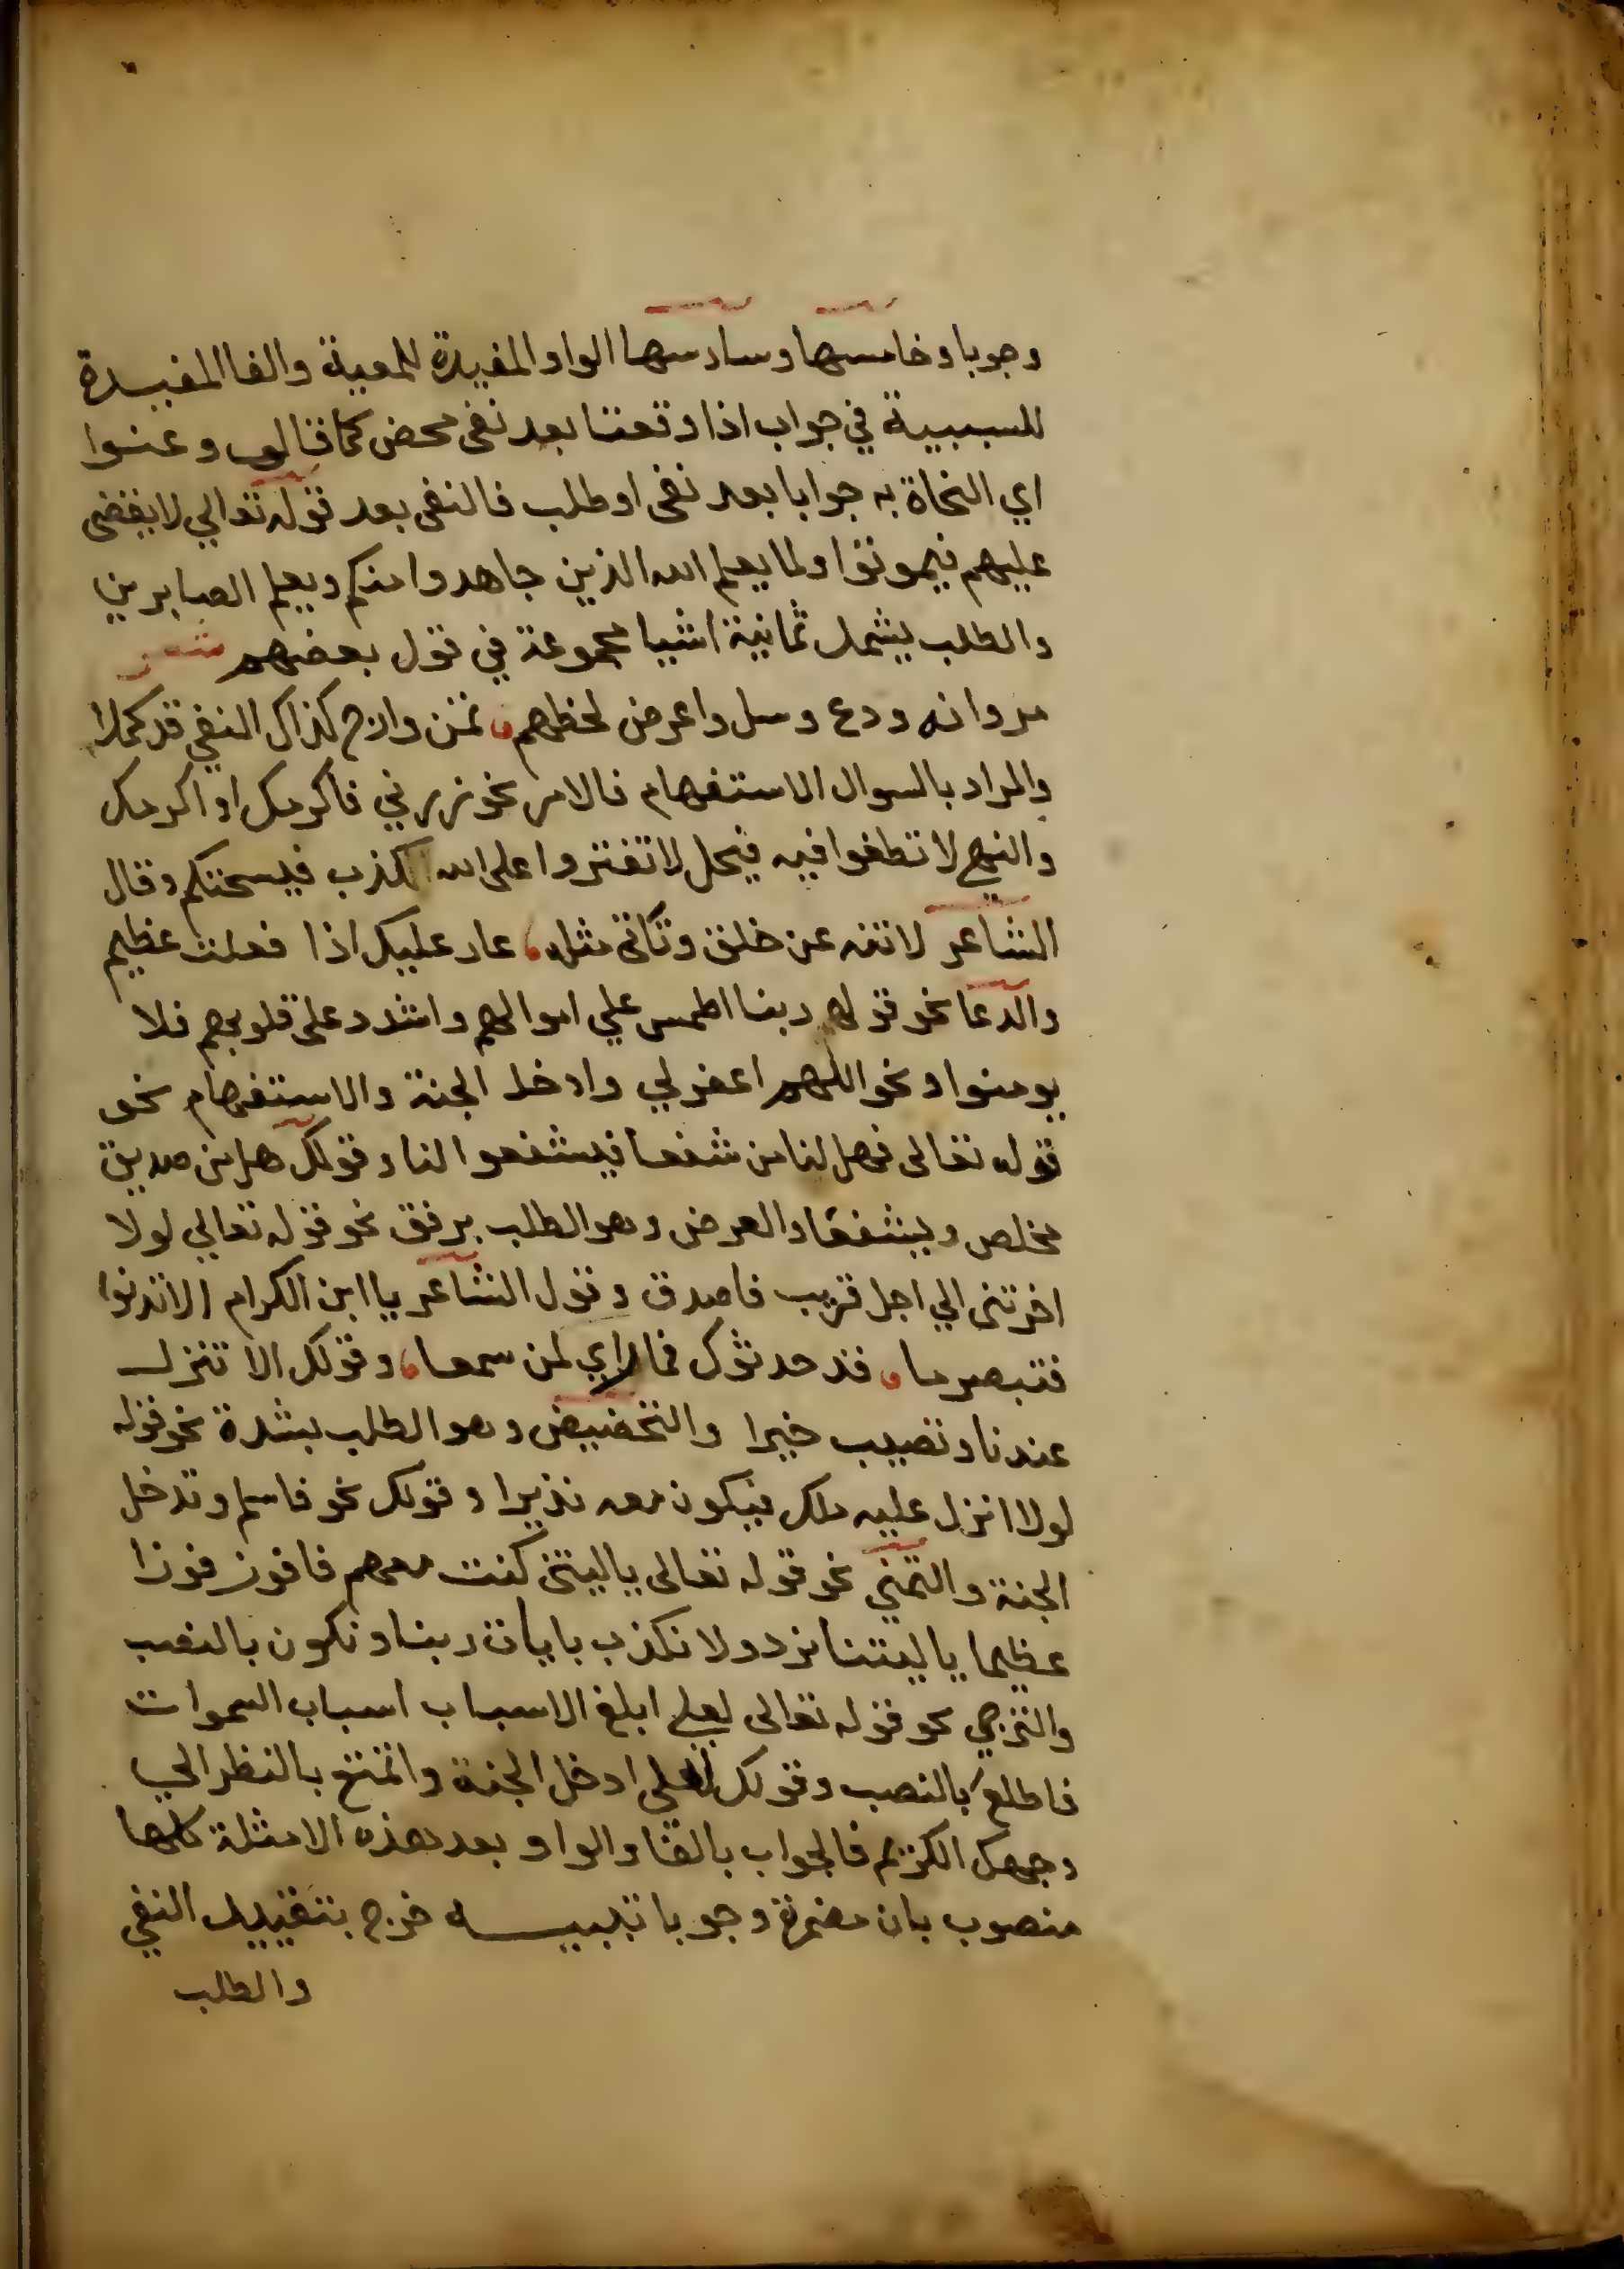 وجوبا وخامسها وسادسها الواو المفيدة للمعية والفا المفيدة
للسببية في جواب اذا وقعتا بعد نفى محض كما قالوا وعنوا
اي النحاة به جوابا بعد نفى او طلب فالنفى بعد قوله تعالي لا يقضى
عليهم فيموتوا ولما يعلم الله الذين جاهدوا منكم ويعلم الصابرين
والطلب يشمل ثمانية اشيا مجموعة في قول بعضهم شعر
مر وانه ودع وسل واعرض لحظهم تمن وارج كذاك النفي قد كملا
والمراد بالسوال الاستفهام فالامر نحو زرني فاكرمك او اكرمك
والنهي لا تطغوا فيه فيحل لا تفتروا على الله الكذب فيسحتكم وقال
الشاعر لا تنه عن خلق وتاتى مثله عار عليك اذا فعلت عظيم
والدعا نحو قولهم ربنا اطمس علي اموالهم واشدد على قلوبهم فلا
يومنوا ونحو اللهم اغفر لي وادخل الجنة والاستفهام نحو
قوله تعالى فهل لنا من شفعا فيشفعوا لنا وقولك هل من صديق
مخلص ويشفعا والعرض وهو الطلب برفق نحو قوله تعالي لولا
اخرتنى الي اجل قريب فاصدق وقول الشاعر يا ابن الكرام الا تدنوا
فتبصر ما قد حدثوك فما راي لمن سمعا وقولك الا تنزل
عندنا وتصيب خيرا والتحضيض وهو الطلب بشدة نحو قوله
لولا انزل عليه ملك فيكون معه نذيرا وقولك نحو فاسلم وتدخل
الجنة والتمني نحو قوله تعالى يا ليتنى كنت معهم فافوز فوزا
عظيما يا ليتنا نرد ولا نكذب بايات ربنا ونكون بالنصب
والترجي نحو قوله تعالى لعلي ابلغ الاسباب اسباب السموات
فاطلع بالنصب وقولك لعلي ادخل الجنة واتمتع بالنظر الي
وجهك الكريم فالجواب بالفا والواو بعد هذه الامثلة كلها
منصوب بان مضمرة وجوبا تنبيه خرج بتقييد النفي
والطلب